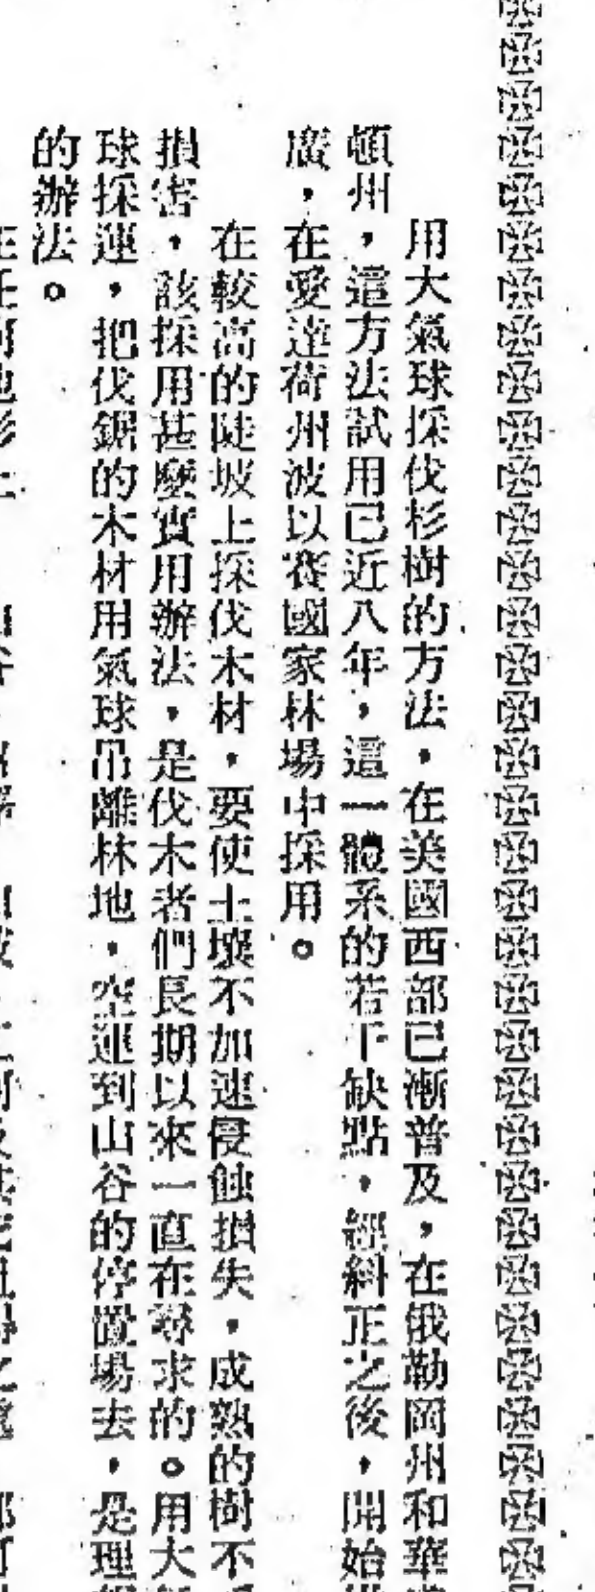 用大氣球採伐杉樹的方法，在美國西部已漸普及，在俄勒岡州和華
頓州，這方法試用已近八年，這一體系的若干缺點，經糾正之後，開始
廣，在愛達荷州波以賽國家林場中採用。
在較高的陡坡上採伐木材，要使土壤不加速侵蝕損失，成熟的樹不
損害，該採用甚麼實用辦法，是伐木者們長期以來一直在尋求的。用大
球採運，把伐鋸的木材用氣球吊離林地，空運到山谷的停置場去，是理
的辦法。